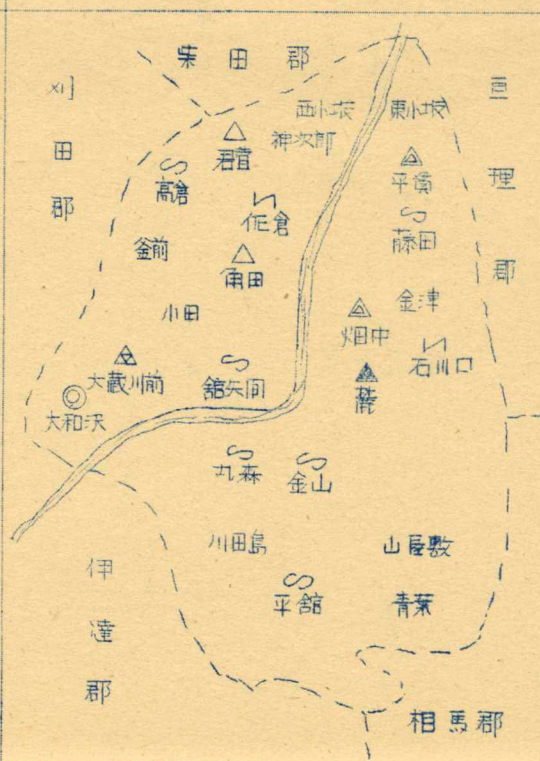 柴田郡
刈田郡
亘理郡
西小坂
東小坂
神次郎
君萱
平貫
高倉
佐倉
藤田
釜前
角田
小田
金津
畑中
石川口
大蔵川前
舘矢間
大和沢
丸森
金山
川田島
山屋敷
平舘
青葉
伊達郡
相馬郡